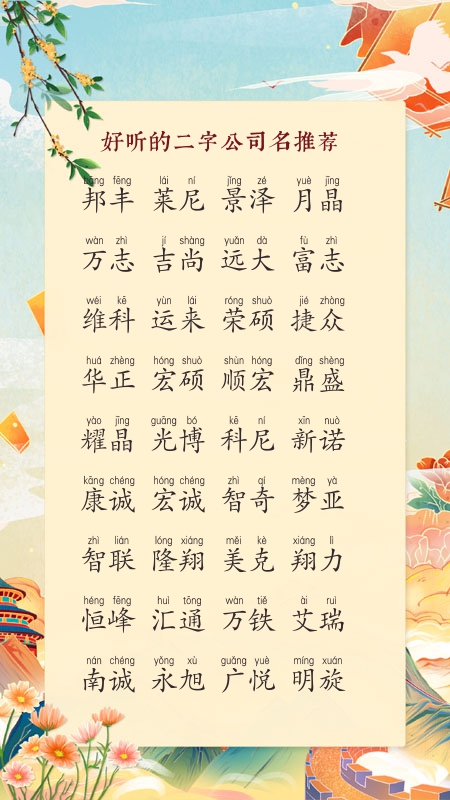 好听的二字公司名推荐
bāng fēng lái ní jǐng zé yuè jīng
邦丰 莱尼 景泽 月晶
wàn zhì jí shàng yuǎn dà fù zhì
万志 吉尚 远大 富志
wéi kē yùn lái róng shuò jié zhòng
维科 运来 荣硕 捷众
huá zhèng hóng shuò shùn hóng dǐng shèng
华正 宏硕 顺宏 鼎盛
yào jīng guāng bó kē ní xīn nuò
耀晶 光博 科尼 新诺
kāng chéng hóng chéng zhì qí mèng yà
康诚 宏诚 智奇 梦亚
zhì lián lóng xiáng měi kè xiáng lì
智联 隆翔 美克 翔力
héng fēng huì tōng wàn tiě ài ruì
恒峰 汇通 万铁 艾瑞
nán chéng yǒng xù guǎng yuè míng xuán
南诚 永旭 广悦 明旋